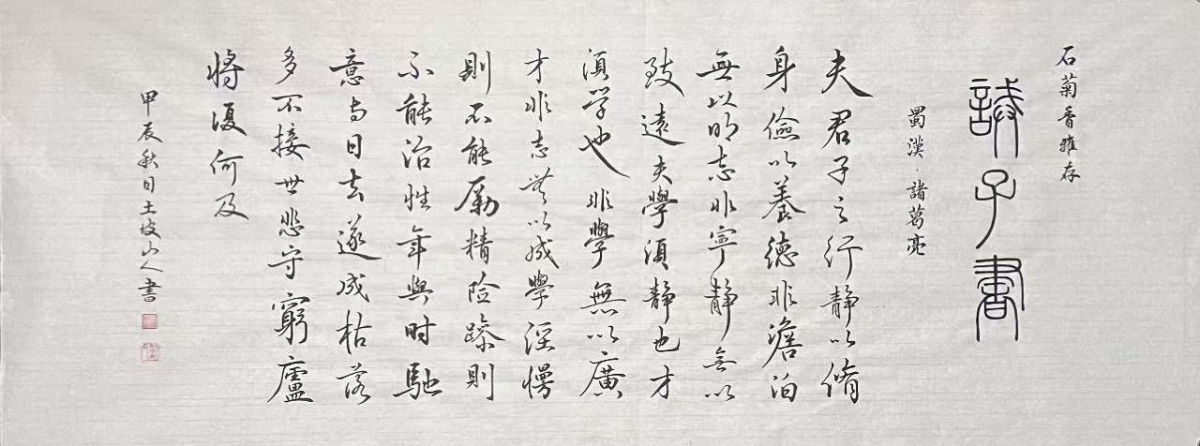 石菊香雅存
誡子書
蜀漢·諸葛亮
夫君子之行静以脩
身儉以養德非澹泊
無以明志非寧静無以
致遠夫學須静也才
須學也非學無以廣
才非志無以成學淫慢
則不能勵精险躁則
不能治性年與时馳
意与日去遂成枯落
多不接世悲守窮廬
將復何及
甲辰秋日土坡山人書